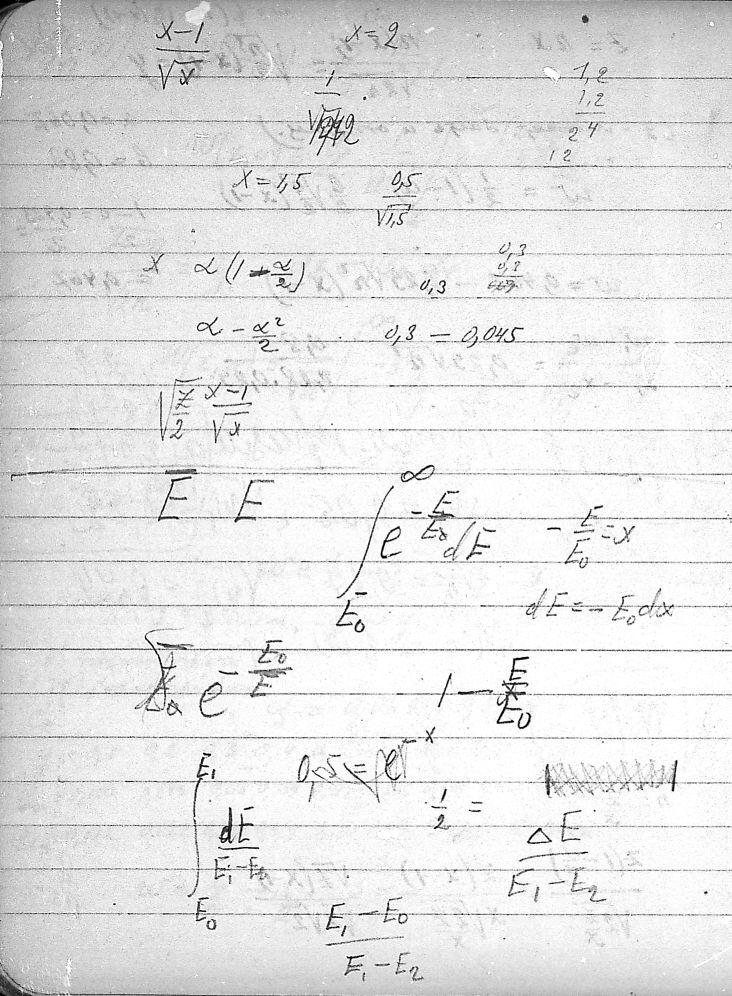 x-1/√x x=2
1/√2
1,2
1,2
24
12
x=1,5 0,5/√1,5
x α(1-α/2) 0,3 0,3
α - α²/2 0,3 - 0,045
√(z/2) x-1/√x
E̅ E ∫ E₀ ∞ e^(-E/E₀) dE -E/E₀=x
dE=-E₀dx
e^(-E₀/E̅) 1 - E/E₀
0,5=e^(-x)
1/2 =
∫ E₀ E₁ dE/(E₁-E₂) ΔE/(E₁-E₂)
E₁-E₀/(E₁-E₂)